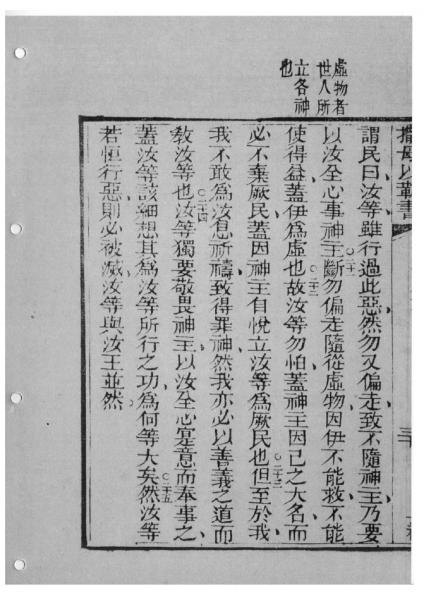 虛物者
世人所
立各神
也
撒母以勒書
謂民曰汝等雖行過此惡然勿又偏走致不隨神主乃要
以汝全心事神主○二十一斷勿偏走隨從虛物因伊不能救不能
使得益蓋伊為虛也○二十二故汝等勿怕蓋神主因己之大名而
必不棄厥民蓋因神主自悅立汝等為厥民也○二十三但至於我
我不敢為汝息祈禱致得罪神然我亦必以善義之道而
教汝等也○二十四汝等獨要敬畏神主以汝全心寔意而奉事之
蓋汝等該細想其為汝等所行之功為何等大矣○二十五然汝等
若恒行惡則必被滅汝等與汝王並然